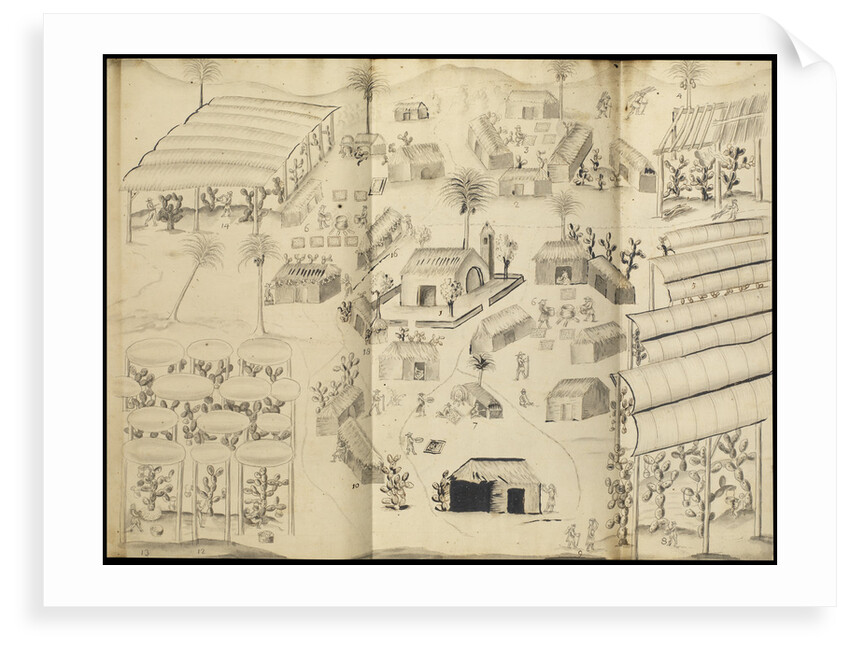 4
3
2
14
6
16
5
1
6
18
7
10
9
8
13
12